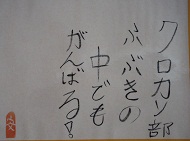 クロカン部
ふぶきの
中でも
がんばる!